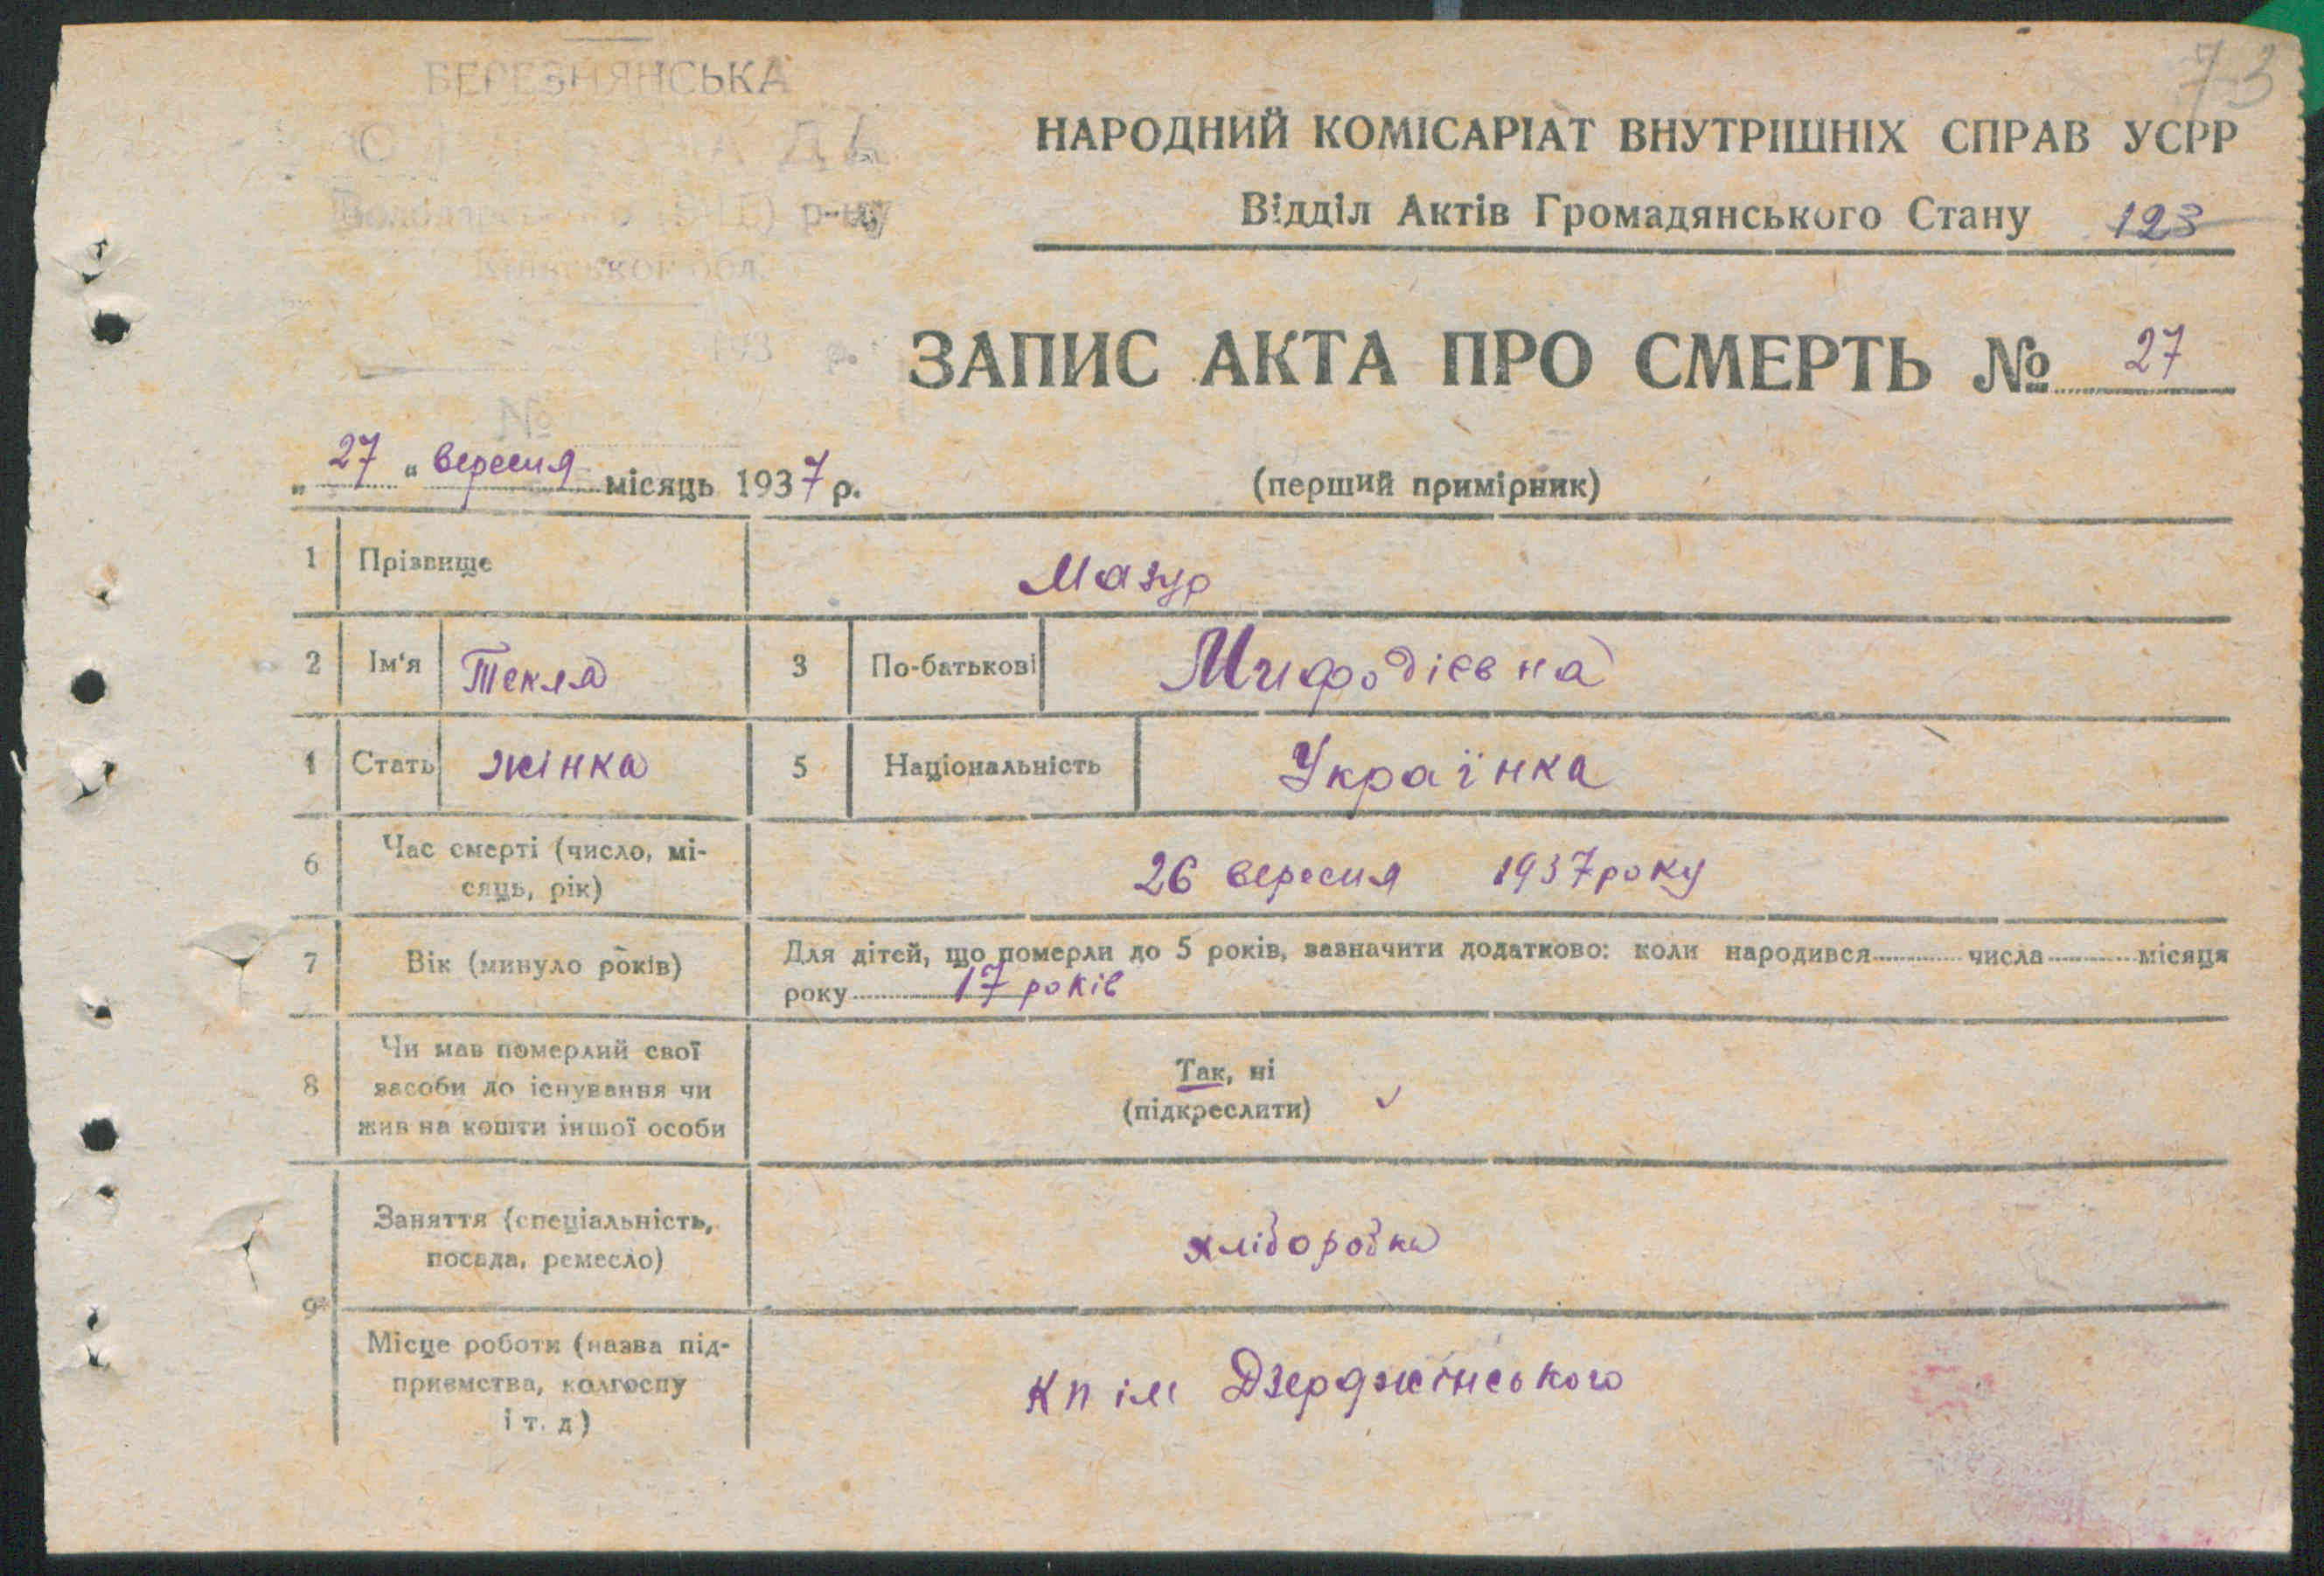 73
БЕРЕЗНЯНСЬКА
НАРОДНИЙ КОМІСАРІАТ ВНУТРІШНІХ СПРАВ УСРР
р-ну
Відділ Актів Громадянського Стану 123
обл.
193 р.
ЗАПИС АКТА ПРО СМЕРТЬ № 27
№
„ 27 “ вересня місяць 1937 р.
(перший примірник)
1 Прізвище Мазур
2 Ім'я Текля 3 По-батькові Мифодієвна
4 Стать жінка 5 Національність Українка
6 Час смерті (число, мі-
сяць, рік) 26 вересня 1937 року
7 Вік (минуло років) Для дітей, що померли до 5 років, зазначити додатково: коли народився числа місяця
року 17 років
8 Чи мав померлий свої
засоби до існування чи
жив на кошти іншої особи
Так, ні
(підкреслити)
9 Заняття (спеціальність,
посада, ремесло) хліборобка
Місце роботи (назва під-
приємства, колгоспу
і т. д)
Кп ім Дзерджінського